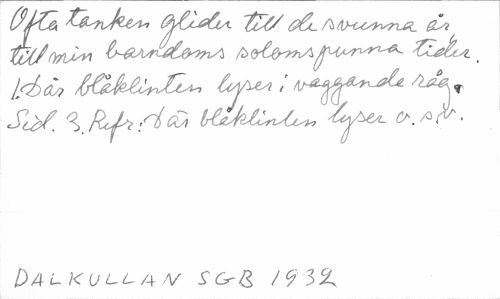 Ofta tanken glider till de svunna år,
till min barndoms solomspunna tider.
1. Där blåklinten lyser i vaggande råg.
Sid. 3. Refr: Där blåklinten lyser o.s.v.
DALKULLAN SGB 1932